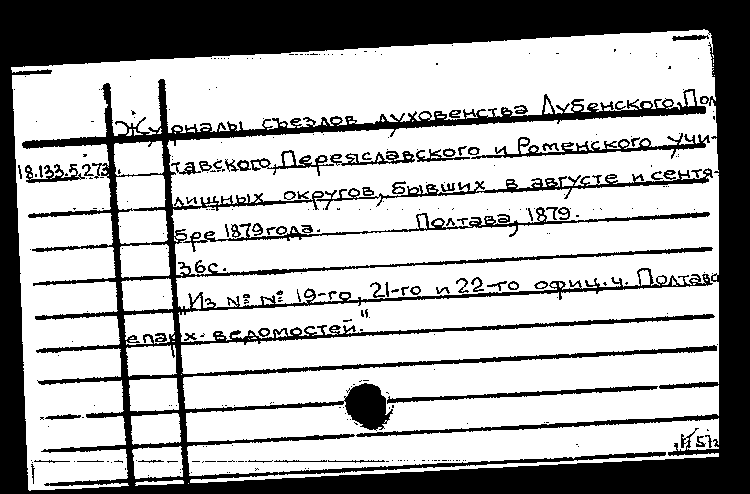 Журналы съездов духовенства Лубенского, Пол
18.133.5.273. тавского, Переяславского и Роменского учи-
лищных округов, бывших в августе и сентя-
бре 1879 года. Полтава, 1879.
36с.
„Из №№ 19-го, 21-го и 22-го офиц. ч. Полтавс
епарх. ведомостей."